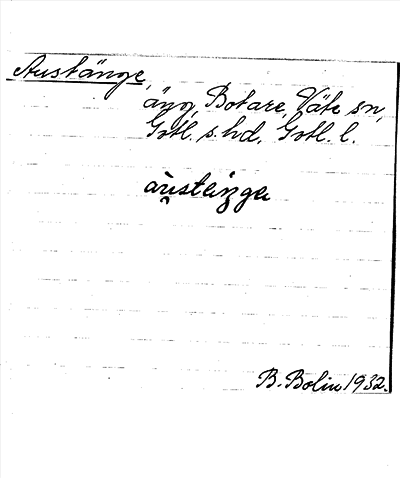 Austänge,
äng, Botare, Väte sn,
Gotl. s. hd. Gotl. l.
au̯stäŋge
B. Bolin 1932.